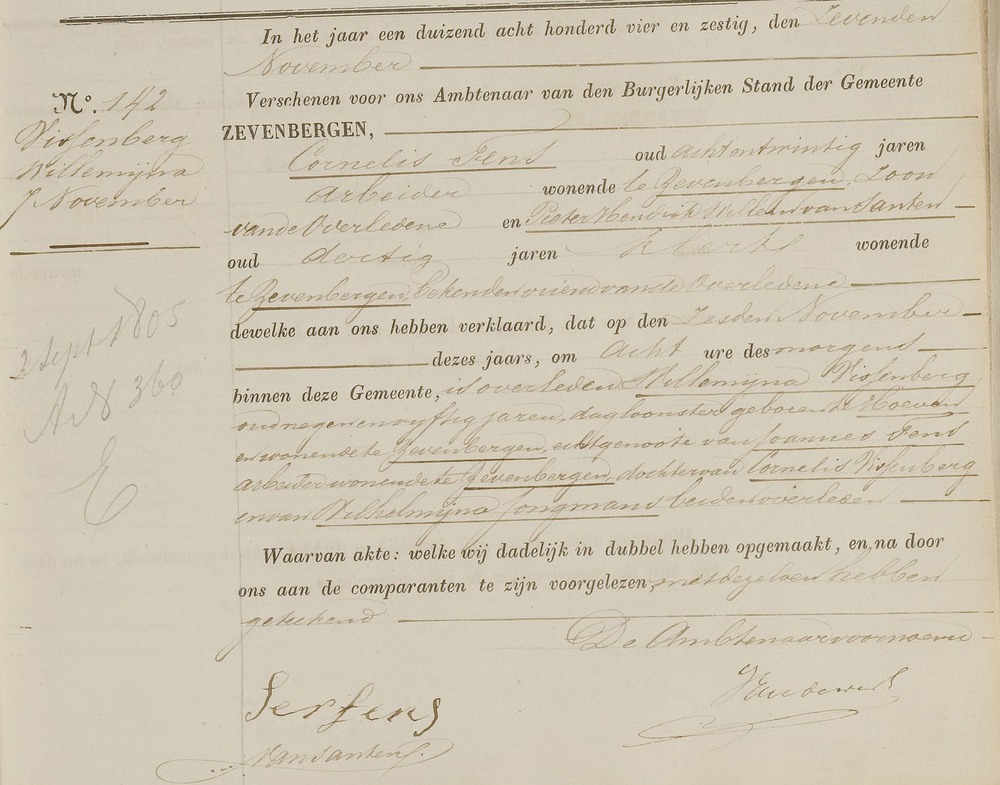 In het jaar een duizend acht honderd vier en zestig, den Zevenden
November
No. 142
Vissenberg
Willemijna
7 November
Verschenen voor ons Ambtenaar van den Burgerlijken Stand der Gemeente
ZEVENBERGEN,
Cornelis Fens oud achtentwintig jaren
Arbeider wonende te Zevenbergen, Zoon
van de Overledene en Pieter Hendrik Willem van Santen
oud dertig jaren klerk wonende
te Zevenbergen, bekenden vriend van de Overledene
dewelke aan ons hebben verklaard, dat op den Zesden November
dezes jaars, om Acht ure des morgens
binnen deze Gemeente, is overleden Willemijna Vissenberg
oud negenenvyftig jaren, dagloonster geboren te Hoeven
en wonende te Zevenbergen, echtgenoote van Joannes Fens
arbeider wonende te Zevenbergen, dochter van Cornelis Vissenberg
en van Wilhelmijna Jongmans beiden overleden
2 Sept 1805
A 8 360
E
Waarvan akte: welke wij dadelijk in dubbel hebben opgemaakt, en, na door
ons aan de comparanten te zijn voorgelezen, met dezelven hebben
getekend
De Ambtenaar voornoemd
Fens
van Santen